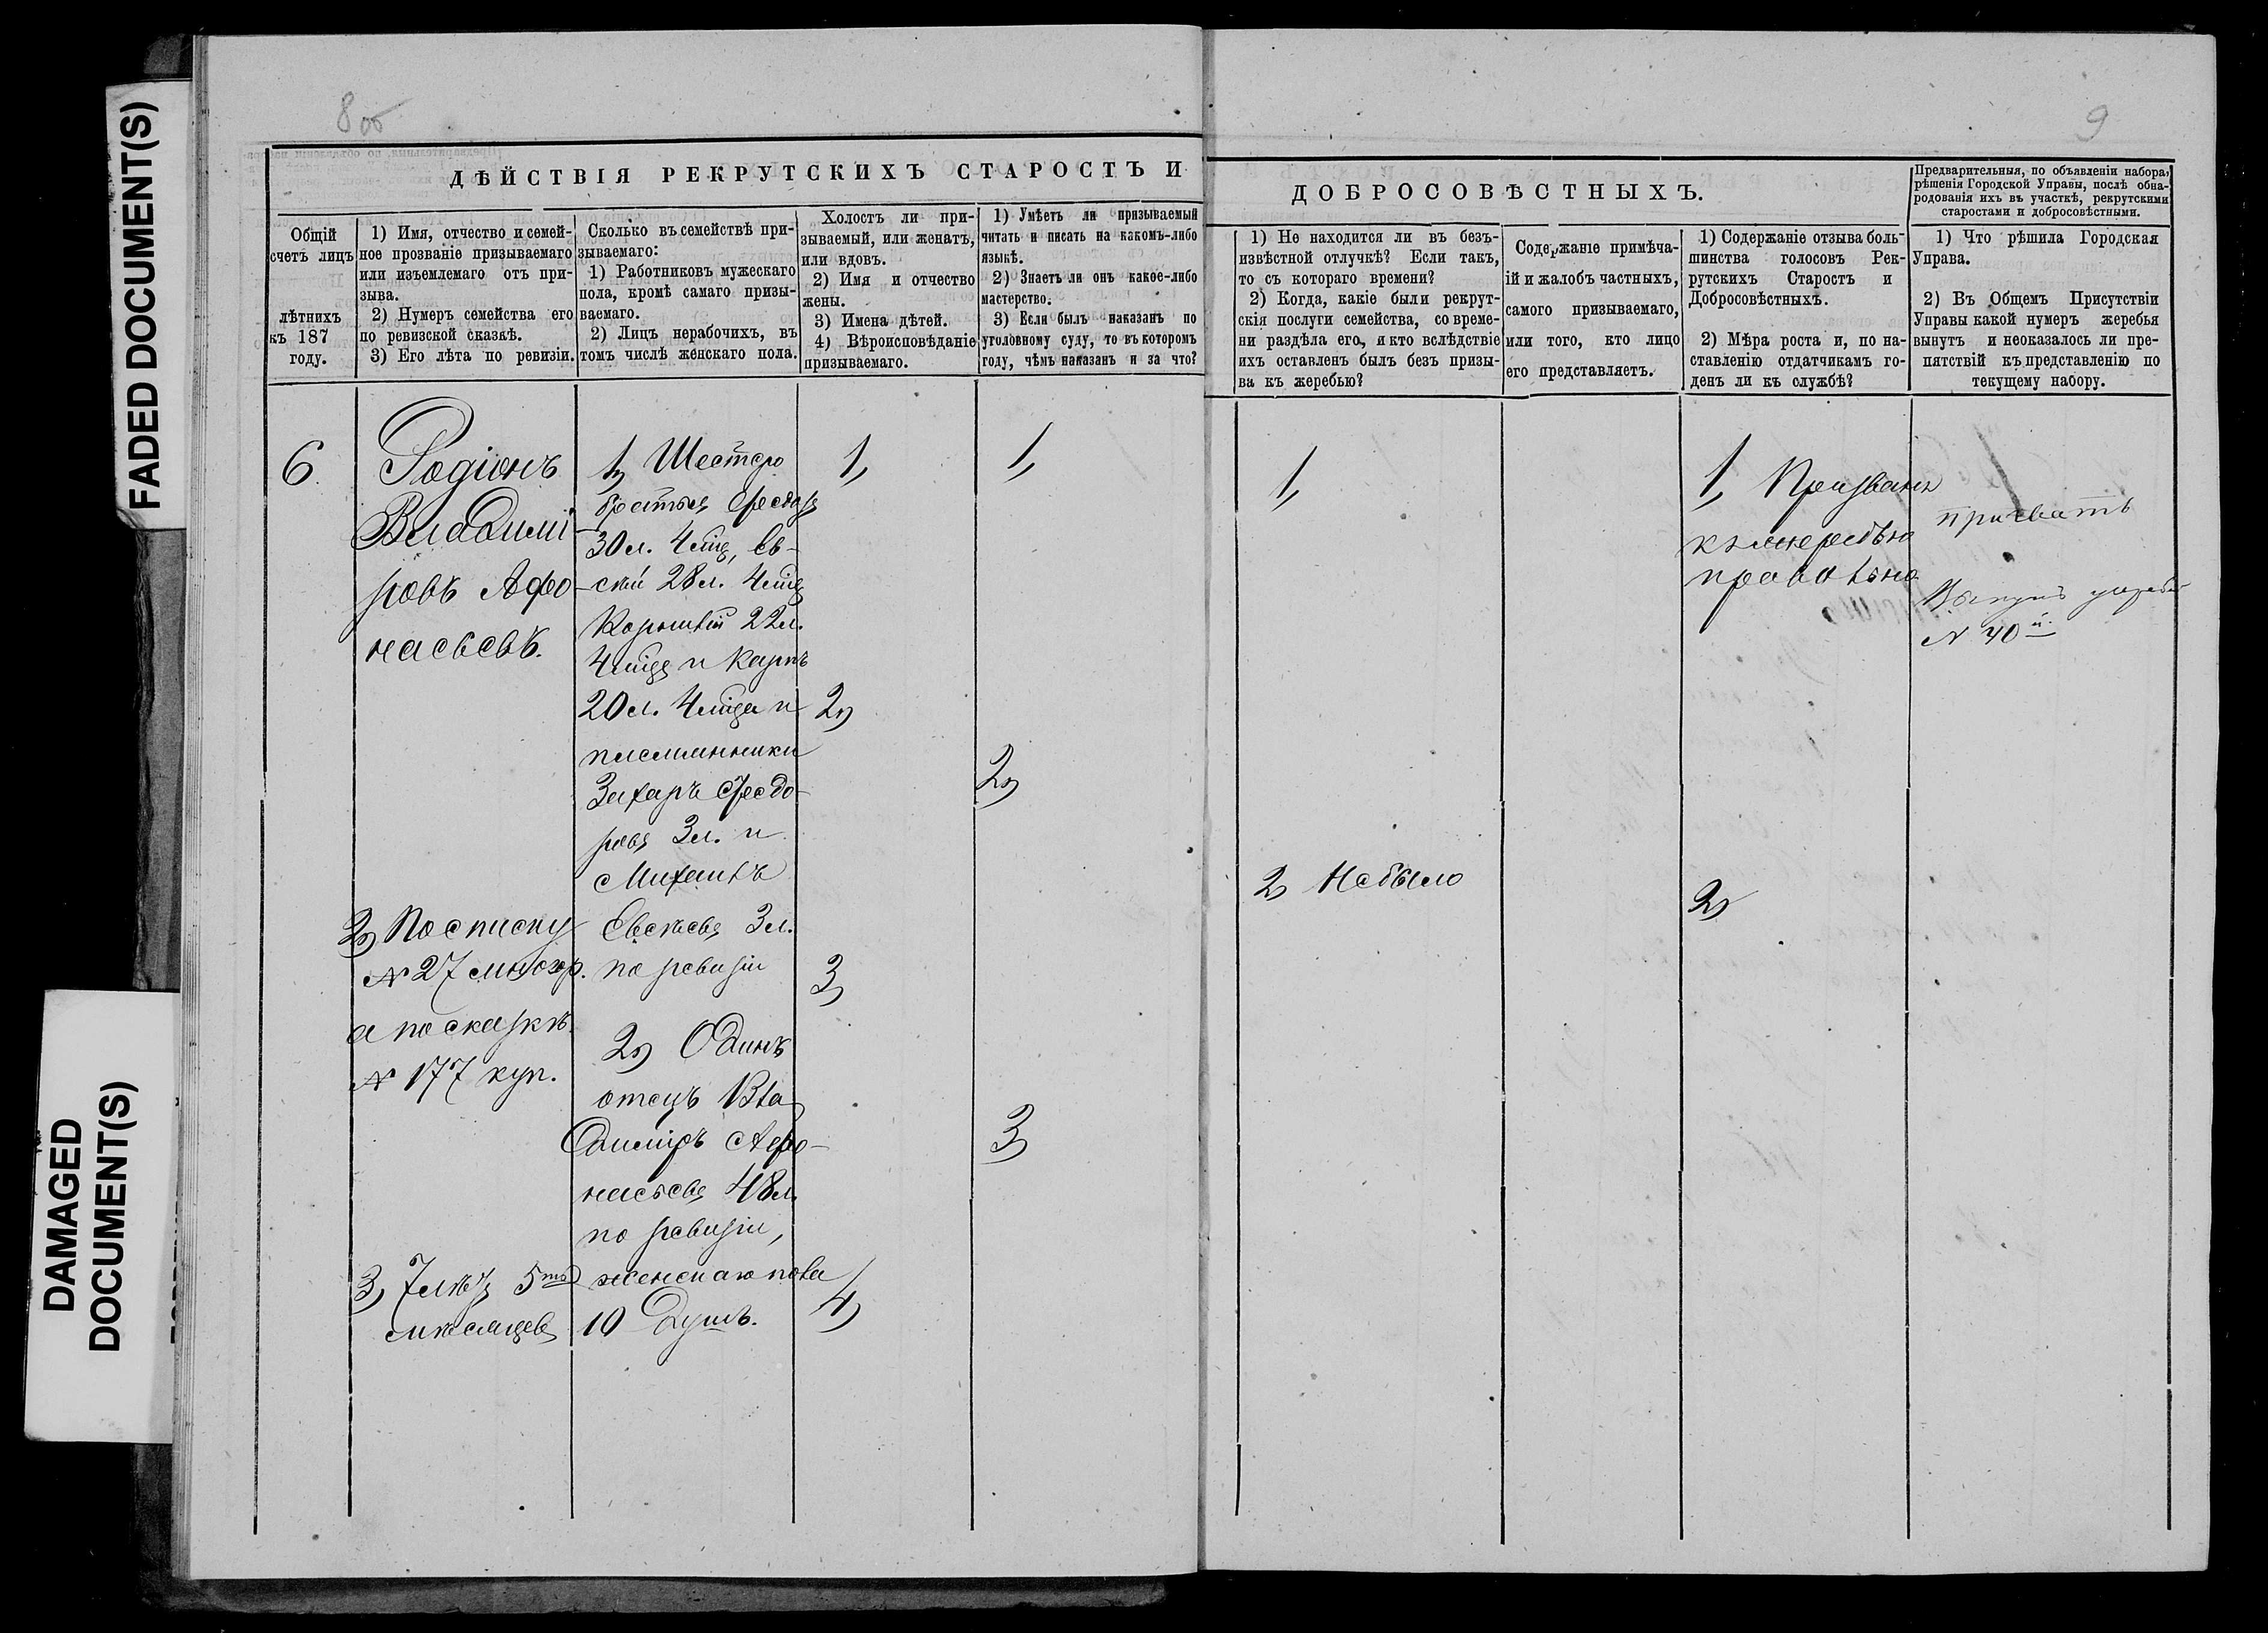 FADED DOCUMENT(S)
DAMAGED
DOCUMENT(S)
8 об
9
ДѢЙСТВІЯ РЕКРУТСКИХЪ СТАРОСТЪ И
ДОБРОСОВѢСТНЫХЪ.
Предварительныя, по объявленіи набора,
рѣшенія Городской Управы, послѣ обна-
родованія ихъ въ участкѣ, рекрутскими
старостами и добросовѣстными.
Общій
счетъ лицъ
лѣтнихъ
къ 187
году.
1) Имя, отчество и семей-
ное прозваніе призываемаго
или изъемлемаго отъ при-
зыва.
2) Нумеръ семейства его
по ревизской сказкѣ.
3) Его лѣта по ревизіи.
Сколько въ семействѣ при-
зываемаго:
1) Работниковъ мужескаго
пола, кромѣ самаго призы-
ваемаго.
2) Лицъ нерабочихъ, въ
томъ числѣ женскаго пола.
Холостъ ли при-
зываемый, или женатъ,
или вдовъ.
2) Имя и отчество
жены.
3) Имена дѣтей.
4) Вѣроисповѣданіе
призываемаго.
1) Умѣетъ ли призываемый
читать и писать на какомъ-либо
языкѣ.
2) Знаетъ ли онъ какое-либо
мастерство.
3) Если былъ наказанъ по
уголовному суду, то въ которомъ
году, чѣмъ наказанъ и за что?
1) Не находится ли въ безъ-
извѣстной отлучкѣ? Если такъ,
то съ котораго времени?
2) Когда, какіе были рекрут-
скія послуги семейства, со време-
ни раздѣла его, и кто вслѣдствіе
ихъ оставленъ былъ безъ призы-
ва къ жеребью?
Содержаніе примѣча-
ій и жалобъ частныхъ,
самого призываемаго,
или того, кто лицо
его представляетъ.
1) Содержаніе отзыва боль-
шинства голосовъ Рек-
рутскихъ Старостъ и
Добросовѣстныхъ.
2) Мѣра роста и, по на-
ставленію отдатчикамъ го-
денъ ли къ службѣ?
1) Что рѣшила Городская
Управа.
2) Въ Общемъ Присутствіи
Управы какой нумеръ жеребья
вынутъ и неоказалось ли пре-
пятствій къ представленію по
текущему набору.
6
Родіонъ
Владимі-
ровъ Афо-
насьевъ.
2) По списку
N 27 многор.
а по сказкѣ
N 177 куп.
3) 7 лѣтъ 5ть
мѣсяцевъ
1) Шестеро
братья Федоръ
30 л. 4 мца, Ев-
сѣй 28 л. 4 мца
22 л.
4 мца и Карпъ
20 л. 4 мца и
племянники
Захаръ Федо-
ровъ 3 л. и
Михаилъ
Евсѣевъ 3 л.
по ревизіи
2) Одинъ
отецъ Вла
димиръ Афо-
насьевъ 48 л.
по ревизіи,
женскаго пола
10 душъ.
1)
2)
3)
4)
1)
2)
3)
1)
2) Не было
1) Призвать
къ жеребью
правильно
2)
призвать
Вынутъ жереб
N 40й